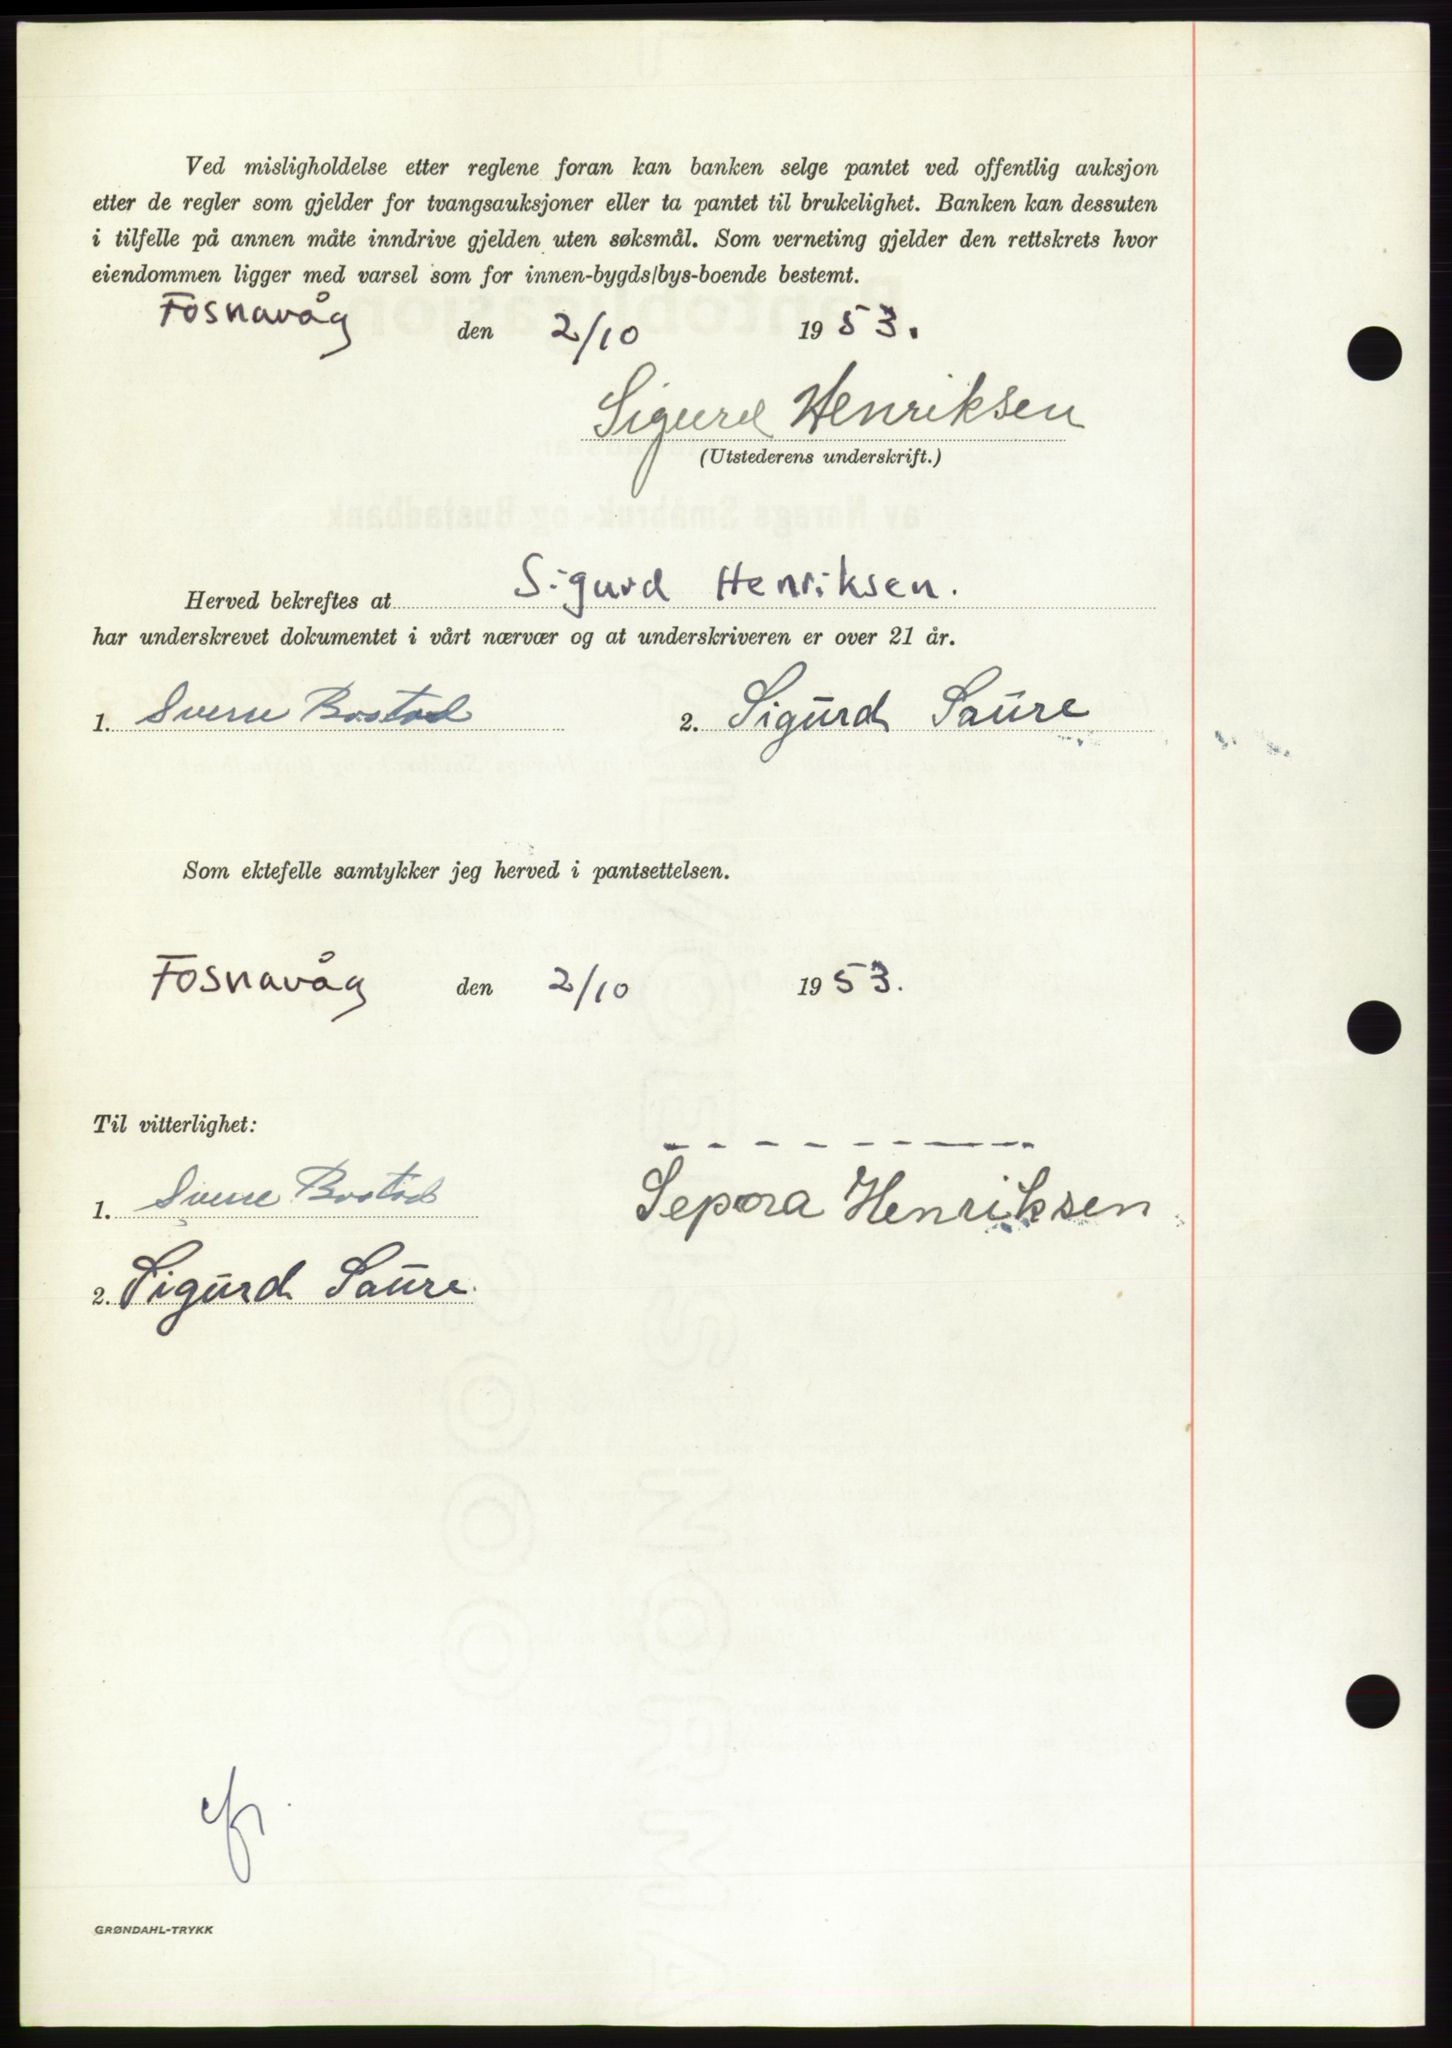 Ved misligholdelse etter reglene foran kan banken selge pantet ved offentlig auksjon
etter de regler som gjelder for tvangsauksjoner eller ta pantet til brukelighet. Banken kan dessuten
i tilfelle på annen måte inndrive gjelden uten søksmål. Som verneting gjelder den rettskrets hvor
eiendommen ligger med varsel som for innen-bygds/bys-boende bestemt.
Fosnavåg den 2/10 1953.
Sigurd Henriksen
(Utstederens underskrift.)
Herved bekreftes at Sigurd Henriksen.
har underskrevet dokumentet i vårt nærvær og at underskriveren er over 21 år.
1. Sverre Bostad 2. Sigurd Saure
Som ektefelle samtykker jeg herved i pantsettelsen.
Fosnavåg den 2/10 1953.
Til vitterlighet:
1. Sverre Bostad Sepora Henriksen
2. Sigurd Saure.
GRØNDAHL-TRYKK